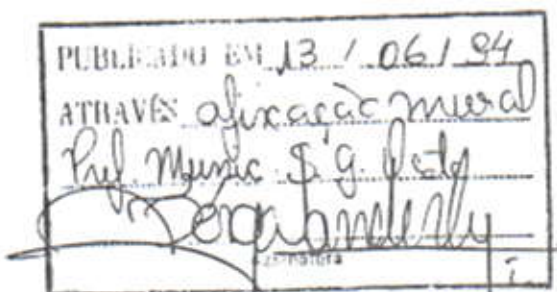 PUBLICADO EM 13 / 06 / 94
ATRAVÉS afixação mural
Pref. Munic. S. G.
Assinatura